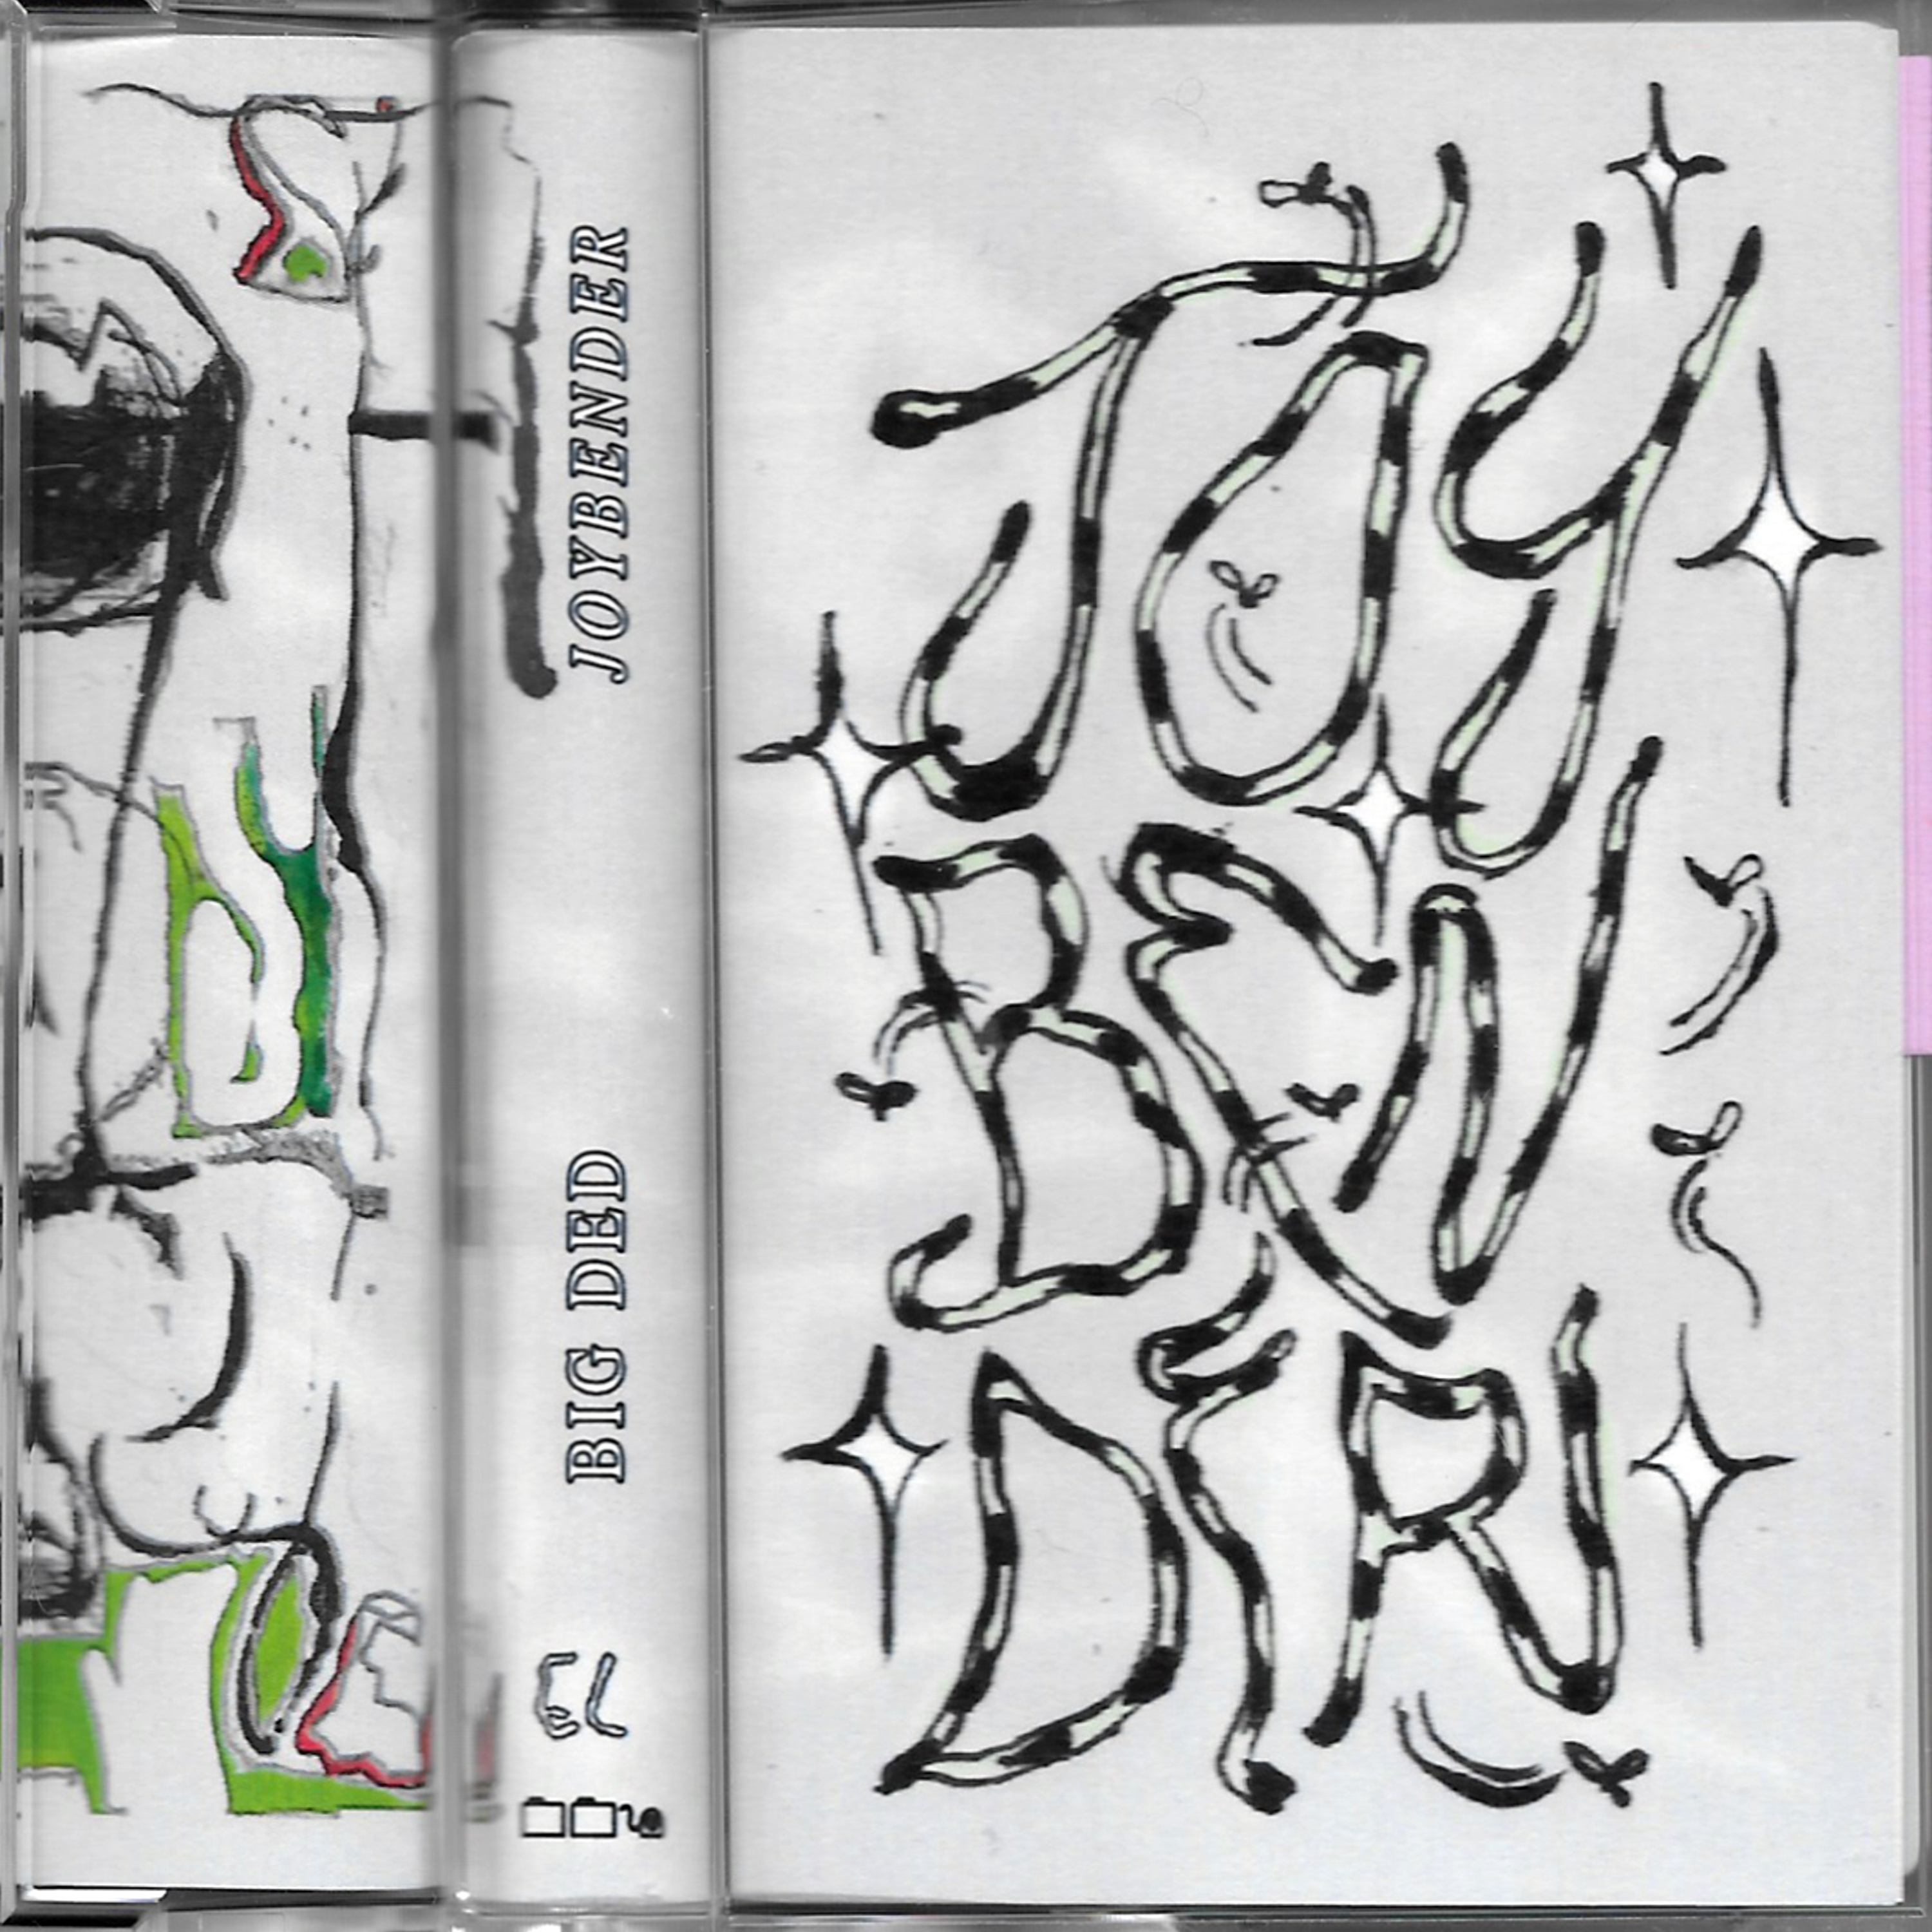 JOYBENDER
BIG DED
JOY
BEN
DER